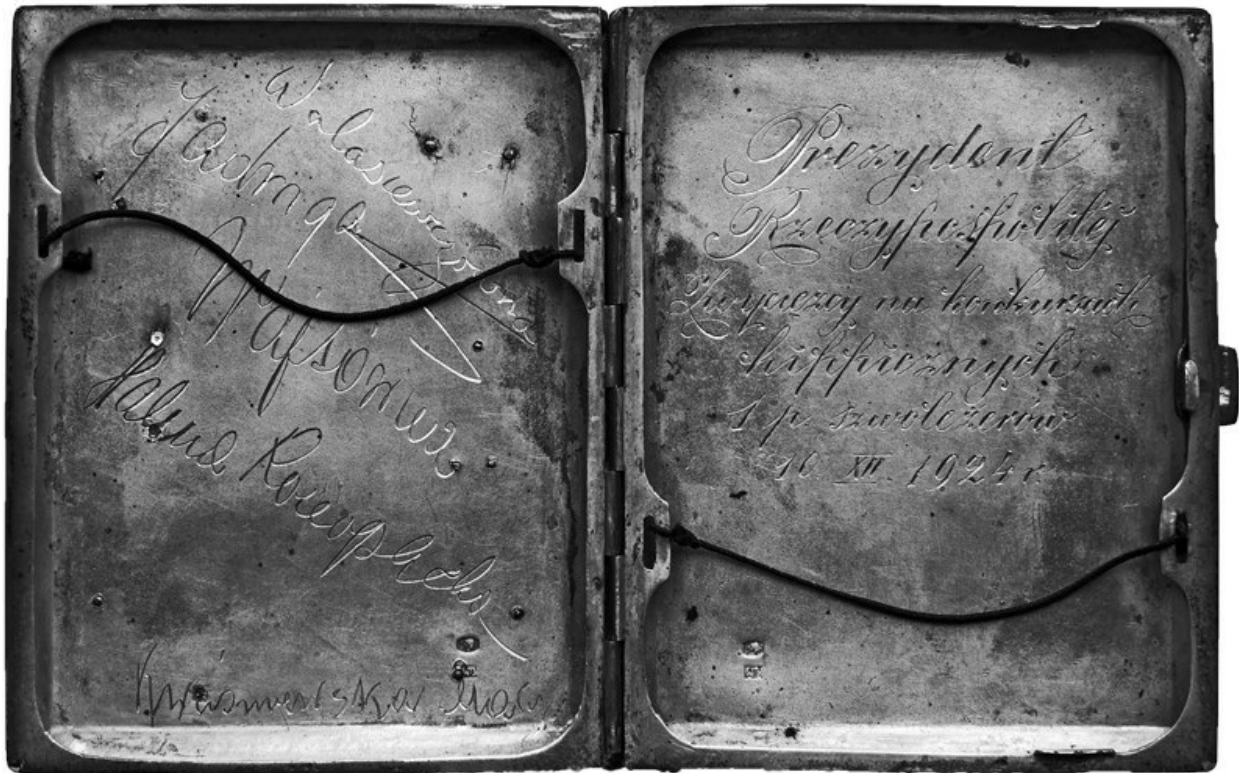 Walasiewiczówna
Jadwiga
Wajsówna
Halina Konopacka
Kwaśniewska
Prezydent
Rzeczypospolitéj
Zwycięzcy na konkursach
hippicznych
1 p. szwoleżerów
16 XII. 1924 r.